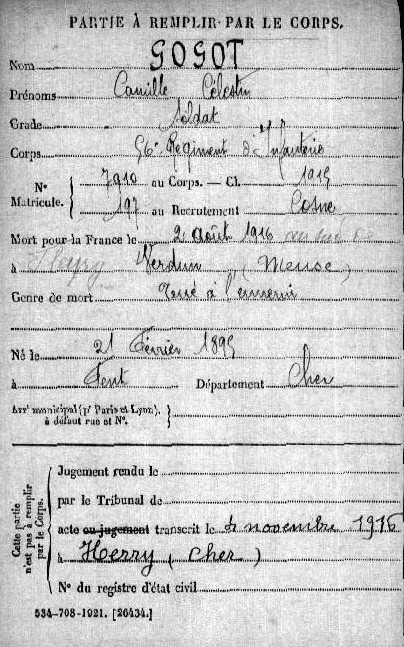 PARTIE À REMPLIR PAR LE CORPS.
Nom GOGOT
Prénoms Camille Célestin
Grade Soldat
Corps 56e Régiment d'Infanterie
No Matricule. 7910 au Corps. — Cl. 1915
197 au Recrutement Cosne
Mort pour la France le 2 août 1916
à Verdun (Meuse)
Genre de mort Tué à l'ennemi
Né le 21 Février 1895
à Département Cher
Arrt municipal (pr Paris et Lyon), à défaut rue et No.
Cette partie n'est pas à remplir par le Corps.
Jugement rendu le
par le Tribunal de
acte ou jugement transcrit le 4 novembre 1916
à Herry (Cher)
No du registre d'état civil
534-708-1921. [26434.]